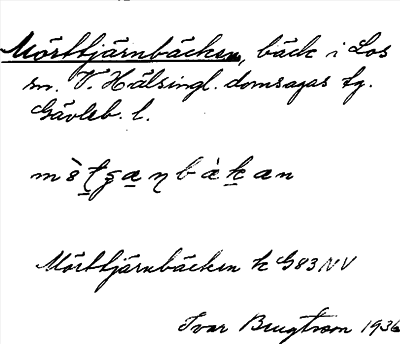 Mörttjärnbäcken, bäck i Los
sn. V. Hälsingl. domsagas tg.
Gävleb. l.
Mörttjärnbäcken k G83NV
Ivar Brugtson 1936